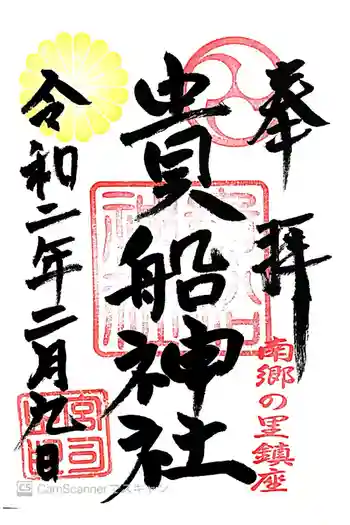 奉拝
南郷の里鎮座
貴船神社
令和二年二月九日
宮司
CS CamScannerでスキャン